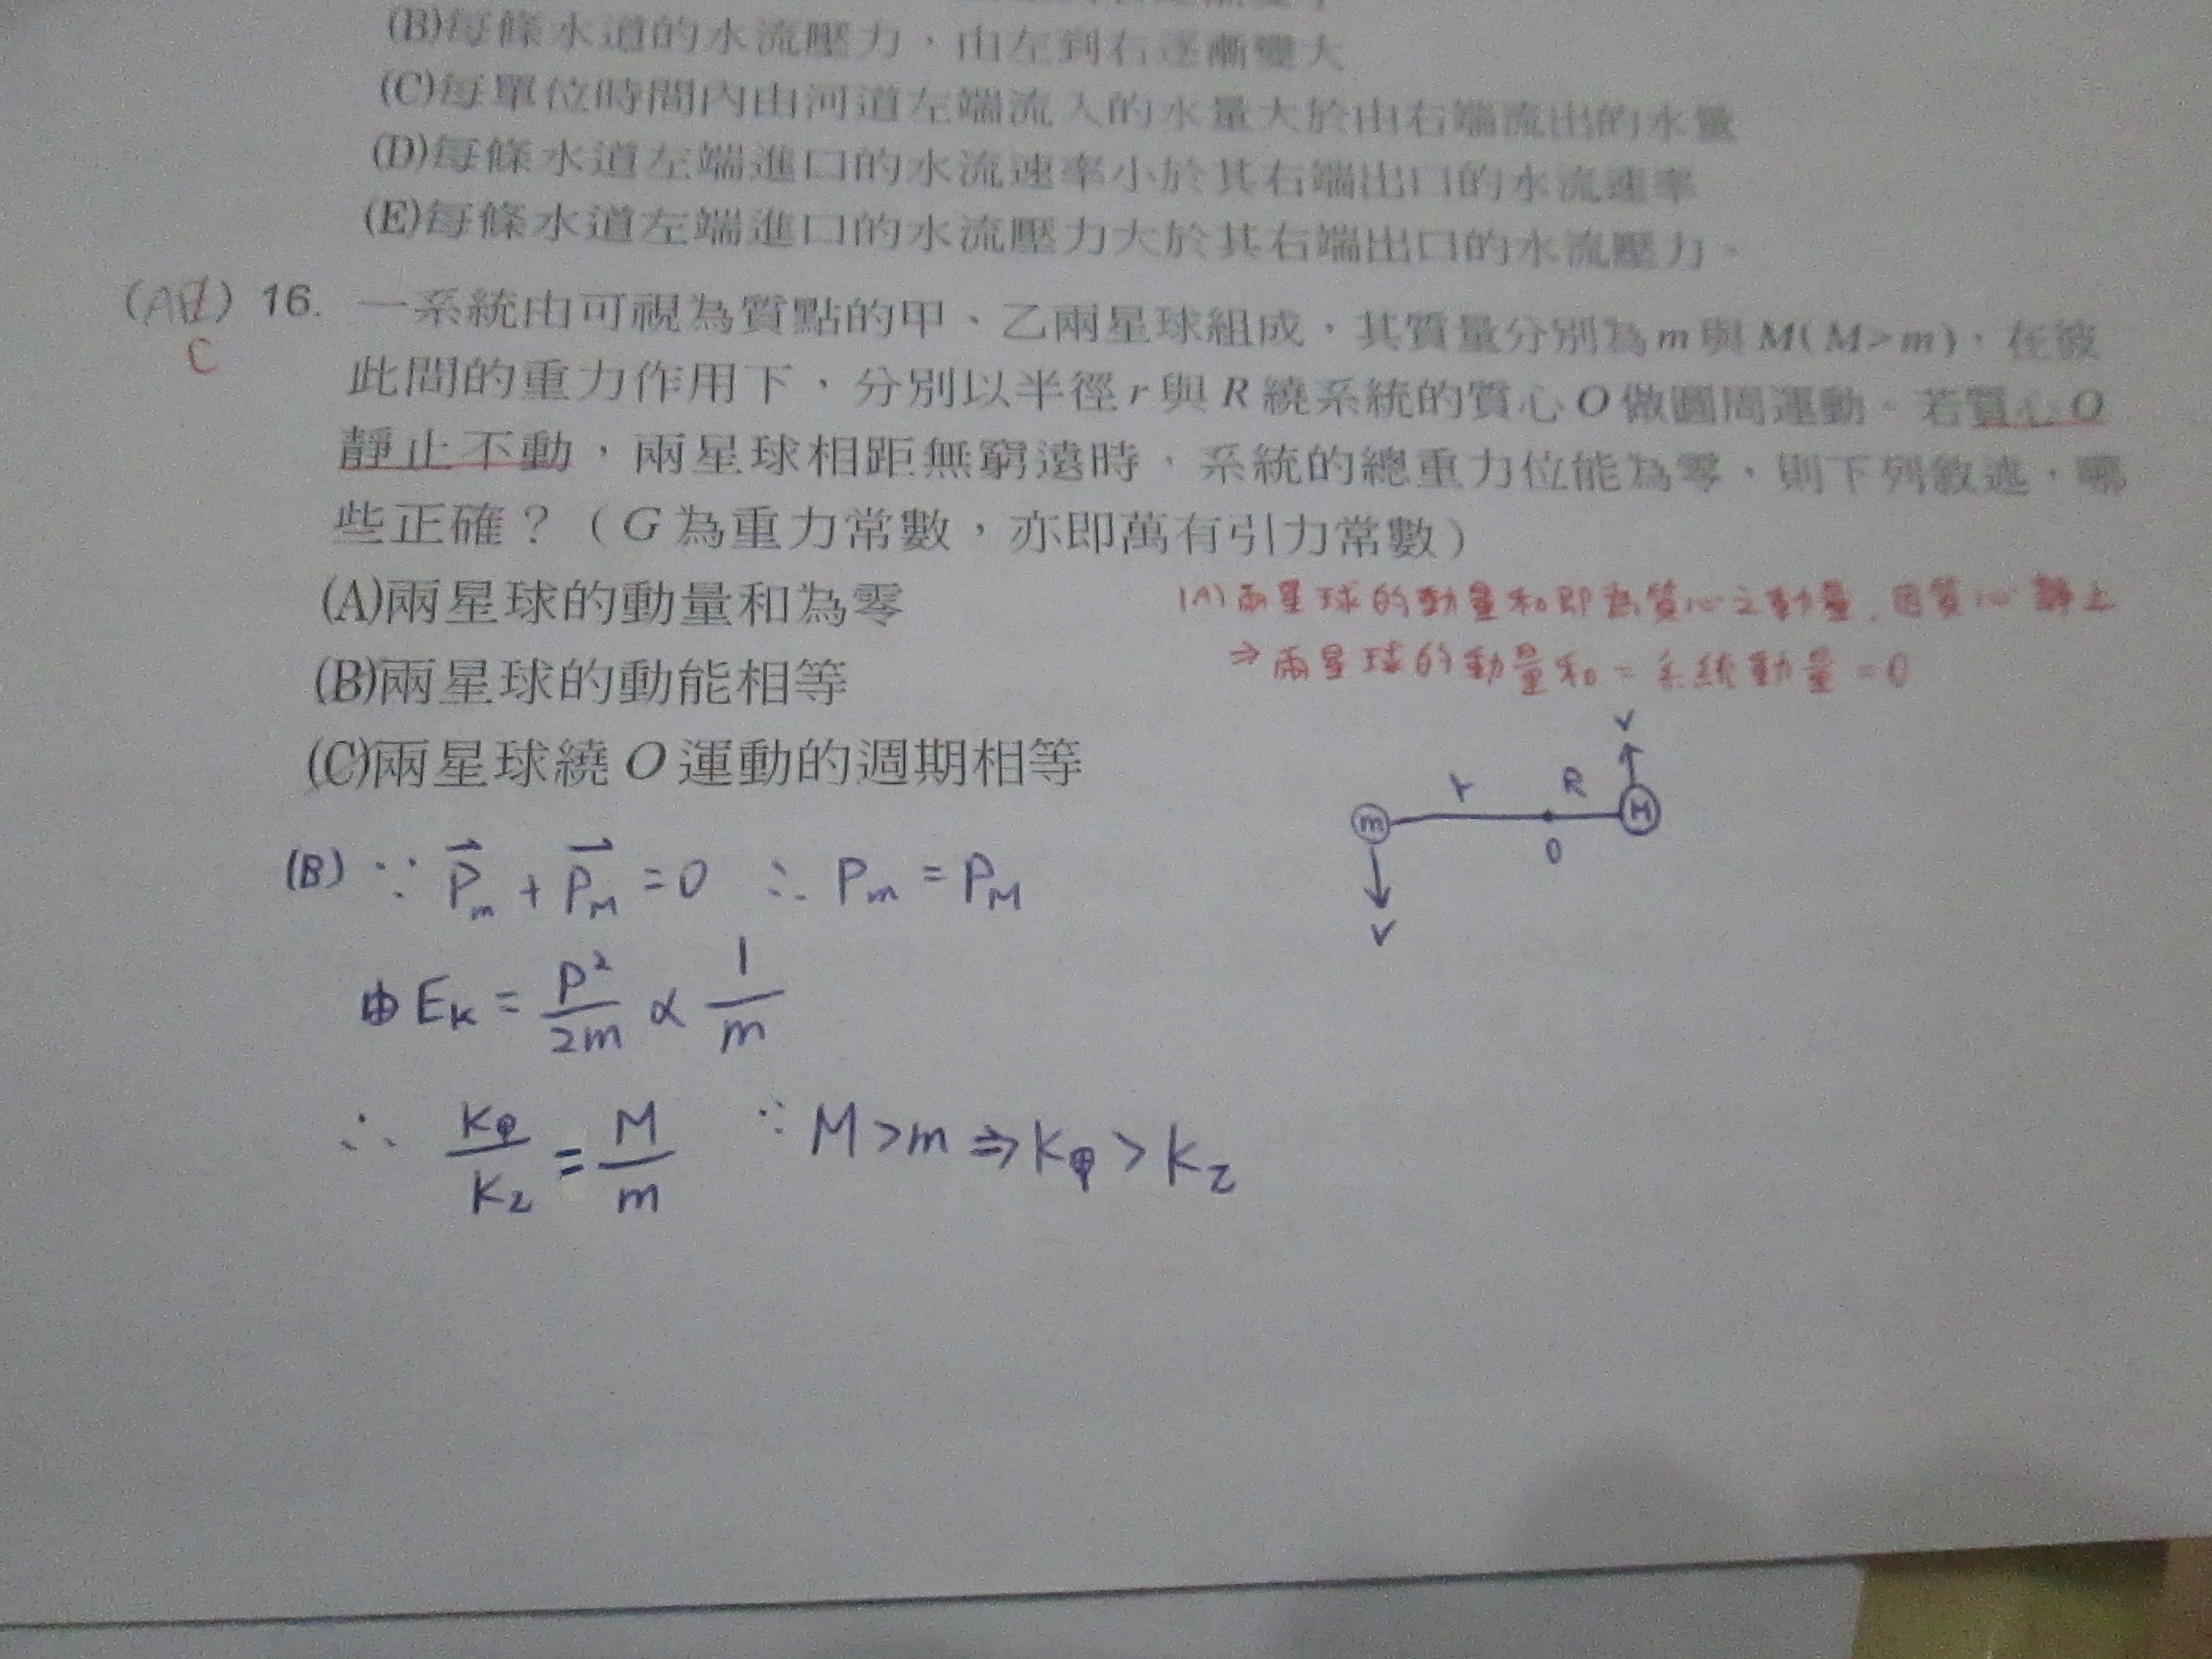 (B)每條水道的水流壓力，由左到右逐漸變大
(C)每單位時間內由河道左端流入的水量大於由右端流出的水量
(D)每條水道左端進口的水流速率小於其右端出口的水流速率
(E)每條水道左端進口的水流壓力大於其右端出口的水流壓力。
(A) 16. 一系統由可視為質點的甲、乙兩星球組成，其質量分別為m與M(M>m)，在彼
C
此間的重力作用下，分別以半徑r與R繞系統的質心O做圓周運動。若質心O
靜止不動，兩星球相距無窮遠時，系統的總重力位能為零，則下列敘述，哪
些正確？（G為重力常數，亦即萬有引力常數）
(A)兩星球的動量和為零
(A)兩星球的動量和即為質心之動量，因質心靜止
⇒兩星球的動量和=系統動量=0
(B)兩星球的動能相等
(C)兩星球繞O運動的週期相等
V
r R
m M
O
V
(B) ∵ P⃗m + P⃗M = 0 ∴ Pm = PM
由 EK = P²/2m ∝ 1/m
∴ K甲/K乙 = M/m ∵ M>m ⇒ K甲 > K乙